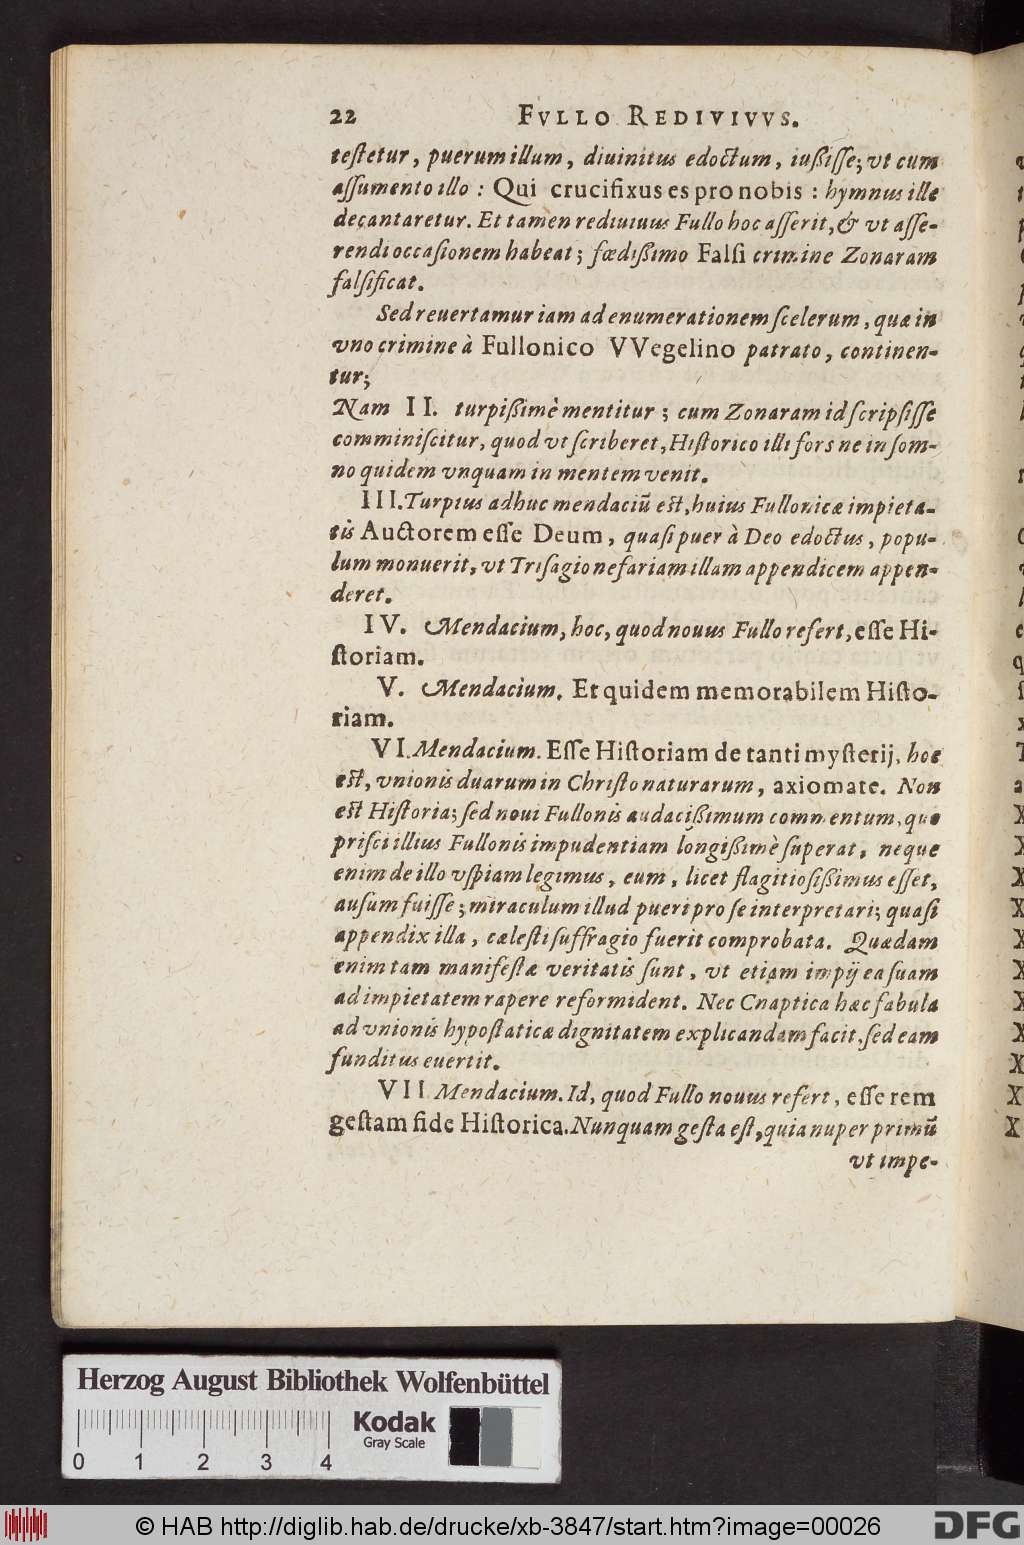 22 FVLLO REDIVIVVS.
teſtetur, puerum illum, diuinitus edoctum, iußiſſe; vt cum
aſſumento illo: Qui crucifixus es pro nobis: hymnus ille
decantaretur. Et tamen rediuiuus Fullo hoc aſſerit, & vt aſſe-
rendi occaſionem habeat; fœdißimo Falſi crimine Zonaram
falſificat.
Sed reuertamur iam ad enumerationem ſcelerum, quæ in
vno crimine à Fullonico VVegelino patrato, continen-
tur;
Nam II. turpißimè mentitur; cum Zonaram id ſcripſiſſe
comminiſcitur, quod vt ſcriberet, Hiſtorico illi fors ne in ſom-
no quidem vnquam in mentem venit.
III. Turpius adhuc mendaciũ eſt, huius Fullonicæ impieta-
tis Auctorem eſſe Deum, quaſi puer à Deo edoctus, popu-
lum monuerit, vt Triſagio nefariam illam appendicem appen-
deret.
IV. Mendacium, hoc, quod nouus Fullo refert, eſſe Hi-
ſtoriam.
V. Mendacium. Et quidem memorabilem Hiſto-
riam.
VI. Mendacium. Eſſe Hiſtoriam de tanti myſterij, hoc
eſt, vnionis duarum in Chriſto naturarum, axiomate. Non
eſt Hiſtoria; ſed noui Fullonis audacißimum commentum, quo
priſci illius Fullonis impudentiam longißimè ſuperat, neque
enim de illo vſpiam legimus, eum, licet flagitioſißimus eſſet,
auſum fuiſſe; miraculum illud pueri pro ſe interpretari; quaſi
appendix illa, cæleſti ſuffragio fuerit comprobata. Quædam
enim tam manifeſtæ veritatis ſunt, vt etiam impij ea ſuam
ad impietatem rapere reformident. Nec Cnaptica hæc fabula
ad vnionis hypoſtaticæ dignitatem explicandam facit, ſed eam
funditus euertit.
VII Mendacium. Id, quod Fullo nouus refert, eſſe rem
geſtam fide Hiſtorica. Nunquam geſta eſt, quia nuper primũ
vt impe-
Herzog August Bibliothek Wolfenbüttel
Kodak
Gray Scale
0 1 2 3 4
© HAB http://diglib.hab.de/drucke/xb-3847/start.htm?image=00026
DFG